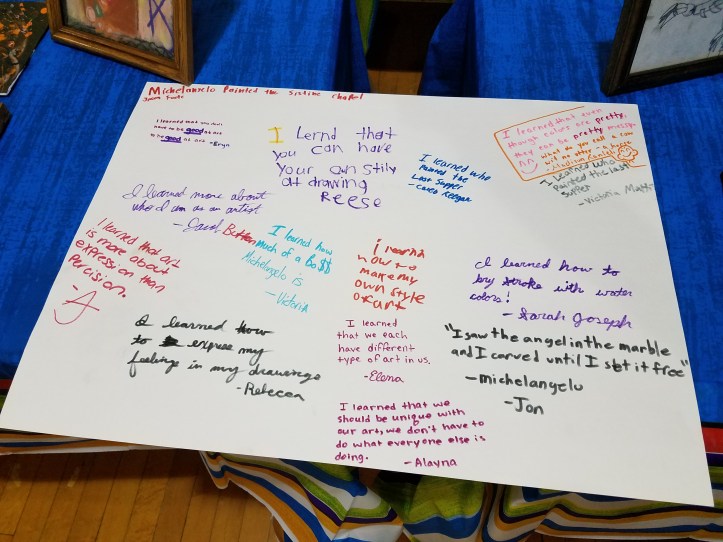 Michelangelo Painted the Sistine Chapel
I learned that you don't
have to be good at art
to be good at art -Bryn
I Lernd that
you can have
Your own stily
at drawing
REESE
I learned who
painted the
Last Supper
I learned that even
though colors are pretty,
they can be pretty messy.
What do you call a cow
with no
I learned who
painted the last
supper
-Victoria
I learned more about
who I am as an artist
-Sarah
I learned how
much of a Bo$$
Michelangelo is
-Victoria
I learned that art
is more about
expression than
percision.
i learnd
how to
make my
own style
of art
I learned how to
try stroke with water
colors!
-Sarah Joseph
I learned
that we each
have different
type of art in us.
-Elena
"I saw the angel in the marble
and I carved until I set it free"
-michelangelo
-Jon
I learned how
to expose my
feelings in my drawings
-Rebecca
I learned that we
should be unique with
our art, we don't have to
do what everyone else is
doing.
-Alayna